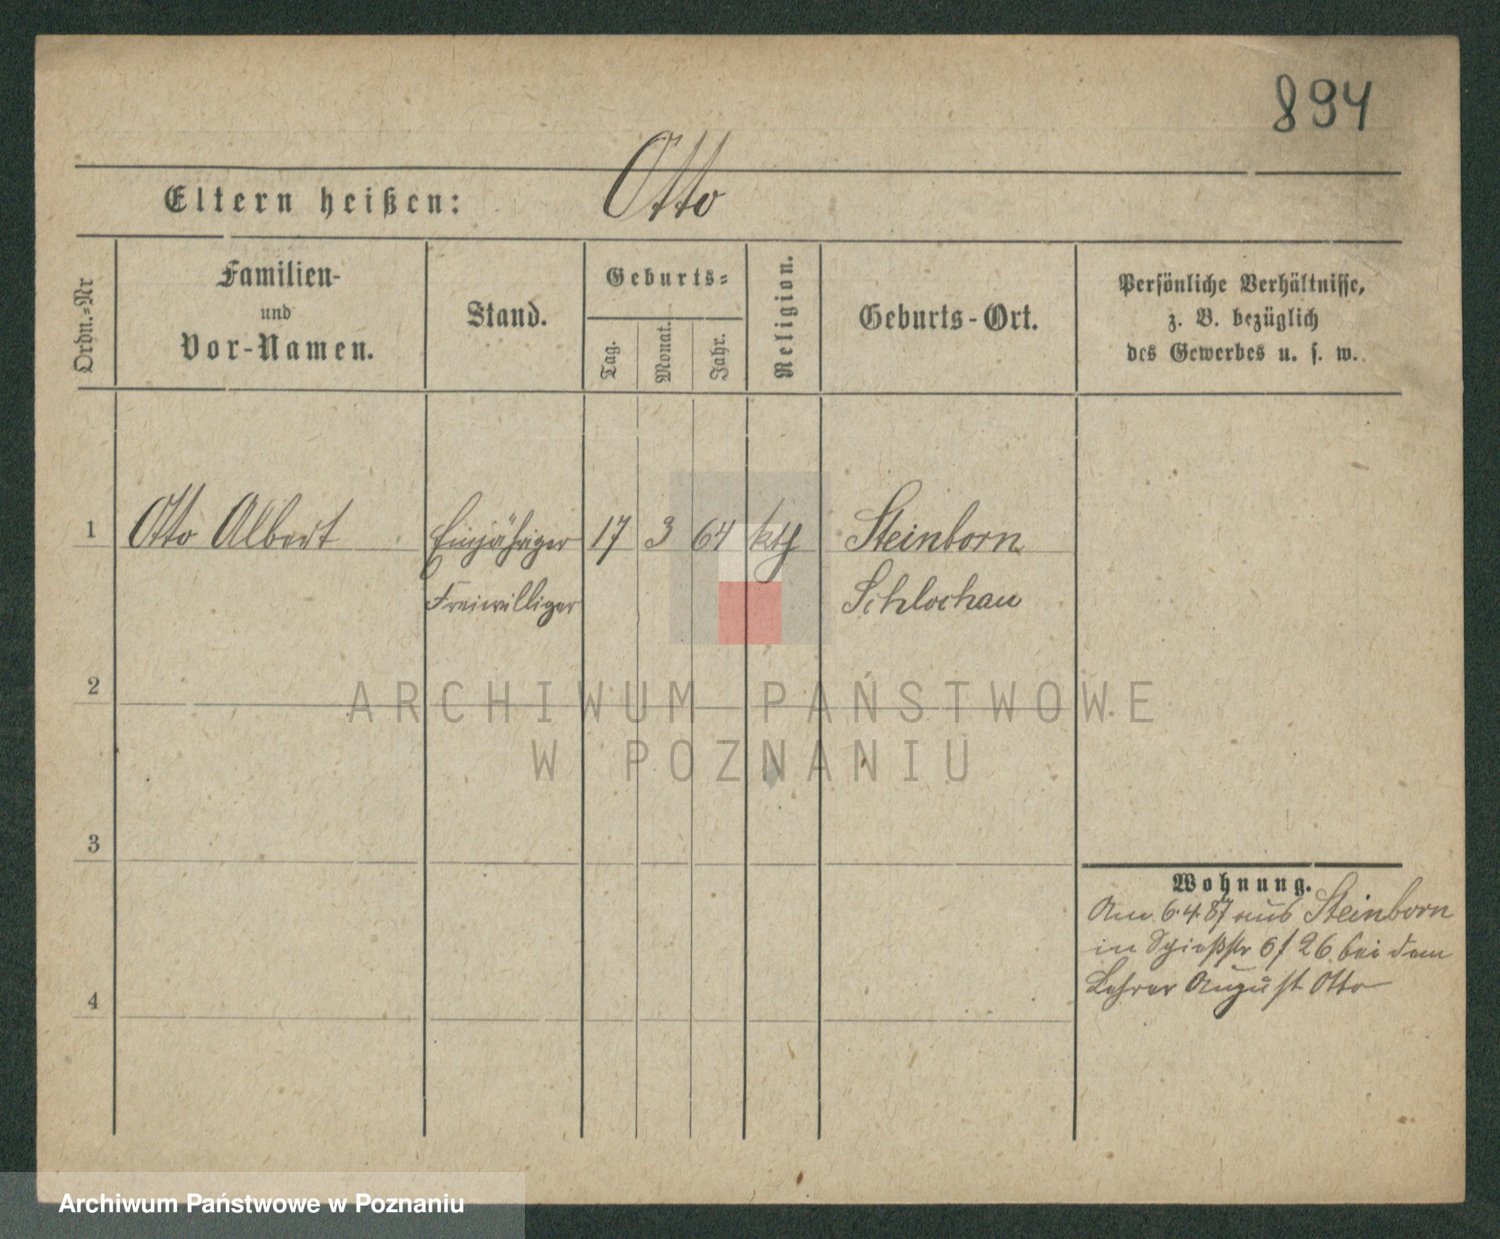 894
Eltern heißen: Otto
Ordn.-Nr
Familien-
und
Vor-Namen.
Stand.
Geburts-
Tag.
Monat.
Jahr.
Religion.
Geburts-Ort.
Persönliche Verhältnisse,
z. B. bezüglich
des Gewerbes u. s. w.
1 Otto Albert Einjähriger 17 3 64 kth Steinborn
Freiwilliger Schlochau
2
ARCHIWUM PAŃSTWOWE
W POZNANIU
3
Wohnung.
Am 6.4.87 aus Steinborn
in Schießstr 6/26 bei dem
Lehrer August Otto
4
Archiwum Państwowe w Poznaniu